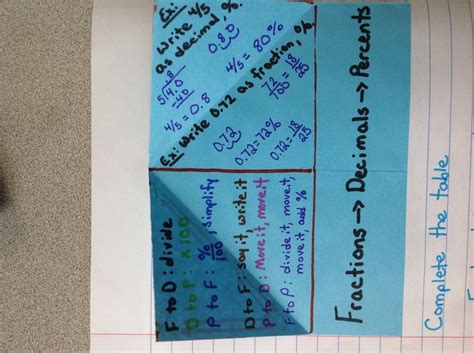 Ex: Write 4/5
as decimal, %.
.8
5)4.0
-40
4/5 = 0.8
0.80
4/5 = 80%
Ex: Write 0.72 as fraction, %.
0.72
0.72 = 72%
72/100 = 18/25
0.72 = 18/25
F to D: divide
D to P: x 100
P to F: %/100, simplify
D to F: say it, write it
P to D: Move it, move it
F to P: divide it, move it,
move it, add %
Fractions → Decimals → Percents
Complete the table